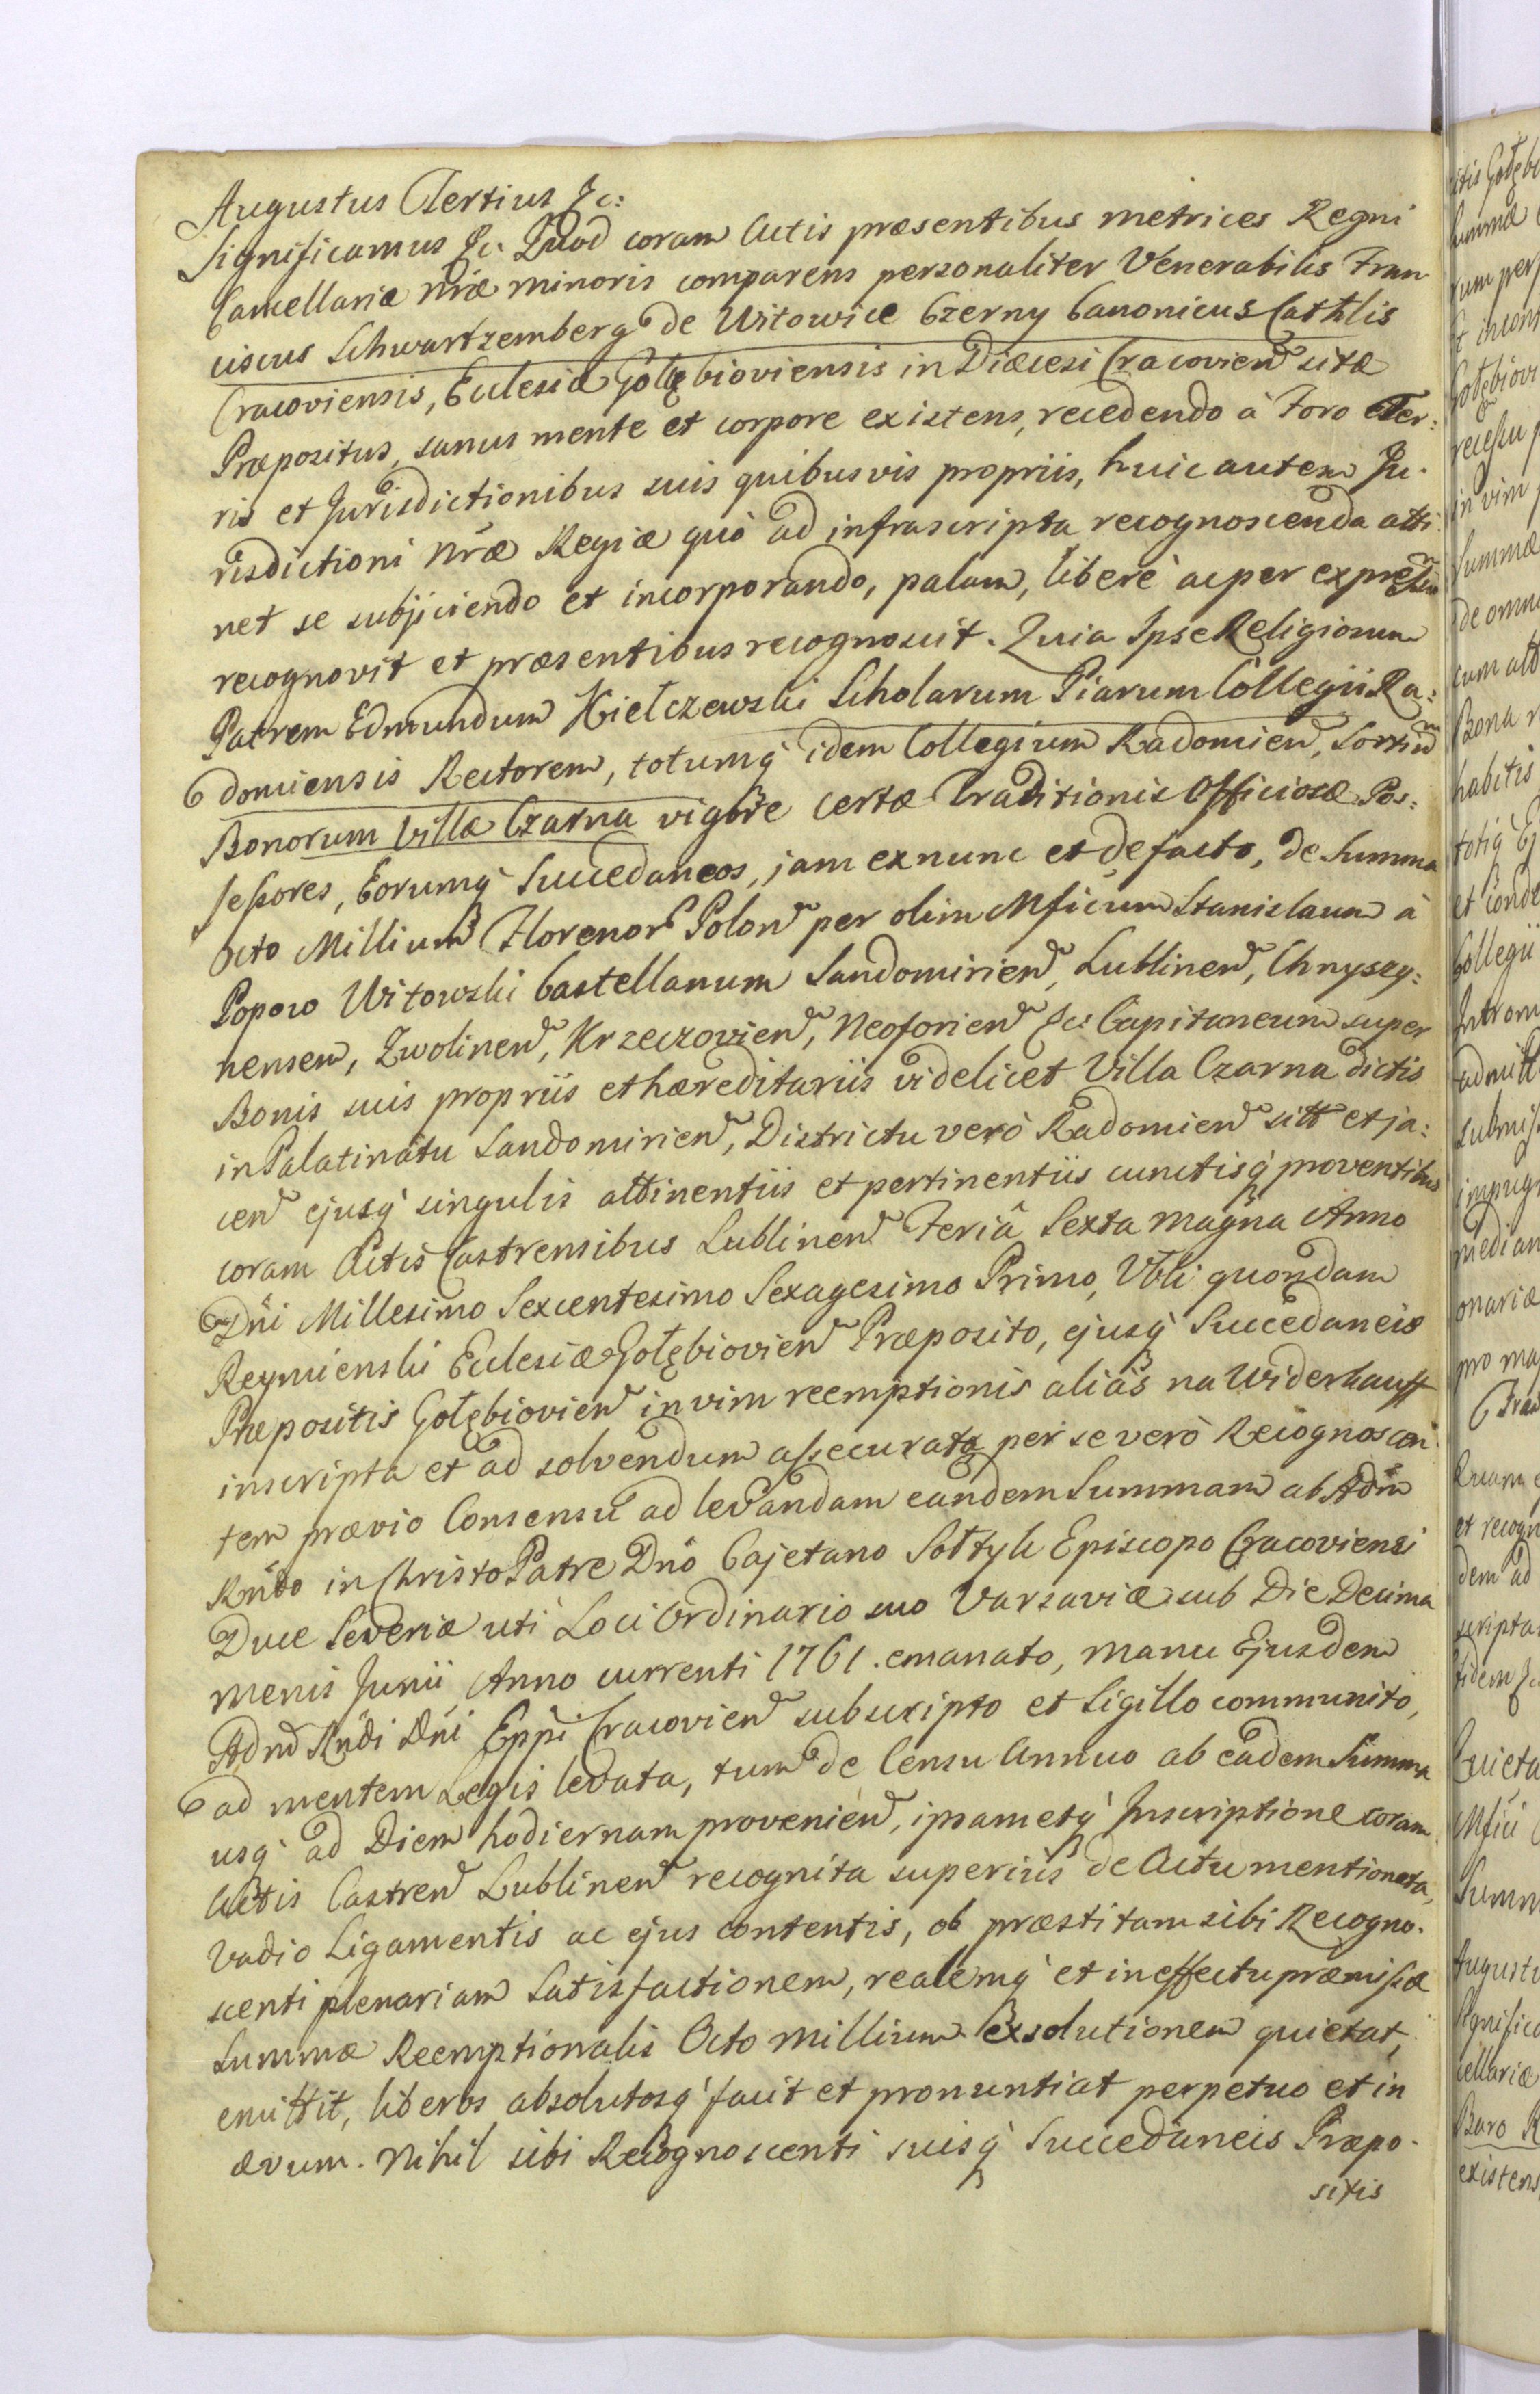 Augustus Tertius &c:
Significamus &c. Quod coram Actis præsentibus metrices Regni
Cancellariæ nr̃æ minoris comparens personaliter Venerabilis Fran
ciscus Schwartzemberg de Witowice Czerny Canonicus Cathlis
Cracoviensis, Ecclesiæ Gołębioviensis in Diæcesi Cracovien sitæ
Præpositus, sanus mente et corpore existens, recedendo à Foro Ter:
ris et Jurisdictionibus suis quibusvis propriis, huic autem Ju.
risdictioni nr̃æ Regiæ quò ad infrascripta recognoscenda atti
net se subjiciendo et incorporando, palam, liberè ac per expressum
recognovit et præsentibus recognoscit. Quia Ipse Religiosum
Patrem Edmundum Kiełczewski Scholarum Piarum Collegii Ra:
domiensis Rectorem, totumq́ idem Collegium Radomien, Sortium
Bonorum Villæ Czarna vigore certæ Traditionis Officiosæ Pos:
sessores, Eorumq́ Succedaneos, jam ex nunc et de facto, de Summa
Octo Millium Florenor Polon per olim Mficum Stanislaum à
Popowo Witowski Castellanum Sandomirien, Lublinen, Chnyszy:
nensem, Zwolinen, Krzeczovien, Neoforien &c: Capitaneum super
Bonis suis propriis et hæreditariis videlicet Villa Czarna dictis
in Palatinatu Sandomirien, Districtu verò Radomien sitt et ja:
cen ejusq́ singulis attinentiis et pertinentiis cunctisq́ proventibus
coram Actis Castrensibus Lublinen Feriâ Sexta magna Anno
Dñi Millesimo Sexcentesimo Sexagesimo Primo, Vbli quondam
Reymienski Ecclesiæ Gołębiovien Præposito, ejusq́ Succedaneis
Præpositis Gołębiovien in vim reemptionis aliàs na Widerkauff
inscripta et ad solvendum assecurata per se verò Recognoscen
tem prævio Consensu ad levandam eandem Summam ab Adm
Rńdo in Christo Patre Dñó Cajetano Sołtyk Episcopo Cracoviensi
Duce Severiæ uti Loci Ordinario suo Varsaviæ sub Die Decima
mensis Junii Anno currenti 1761. emanato, manu Ejusdem
Adm Rńdi Dñi Eppi Cracovien subscripto et Sigillo communito,
ad mentem Legis levata, tum de Censu Annuo ab eadem Summa
usq́ ad Diem hodiernam provenien, ipsametq́ Inscriptione coram
Actis Castren Lublinen recognita superiùs de Actu mentionata,
Vadio Ligamentis ac ejus contentis, ob præstitam sibi Recogno.
scenti plenariam Satisfactionem, realemq́ et in effectu præmissæ
Summæ Reemptionalis Octo Millium exsolutionem quietat,
emittit, liberos absolutosq́ facit et pronuntiat perpetuo et in
ævum. Nihil sibi Recognoscenti suisq́ Succedaneis Præpo.
sitis